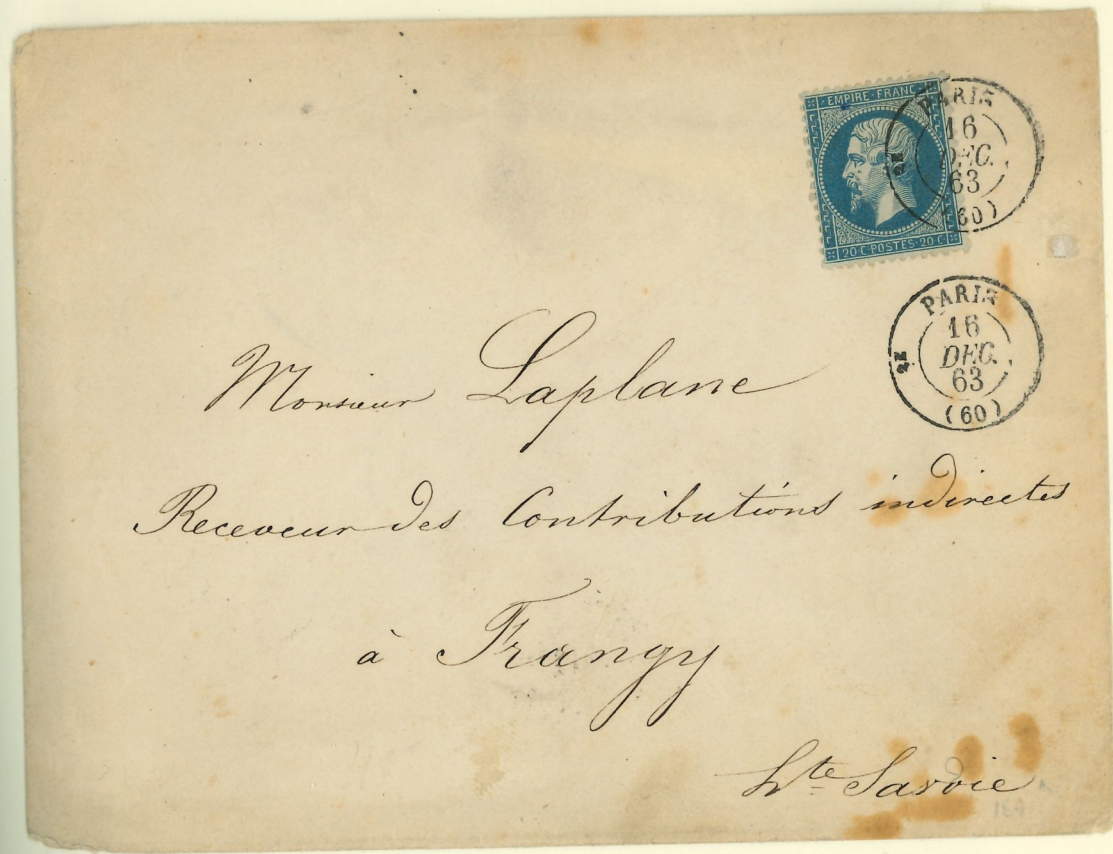 EMPIRE FRANC
20 C POSTES 20 C
PARIS
16
DEC.
63
(60)
PARIS
16
DEC.
63
(60)
Monsieur Laplane
Receveur des Contributions indirectes
à Frangy
Hte Savoie